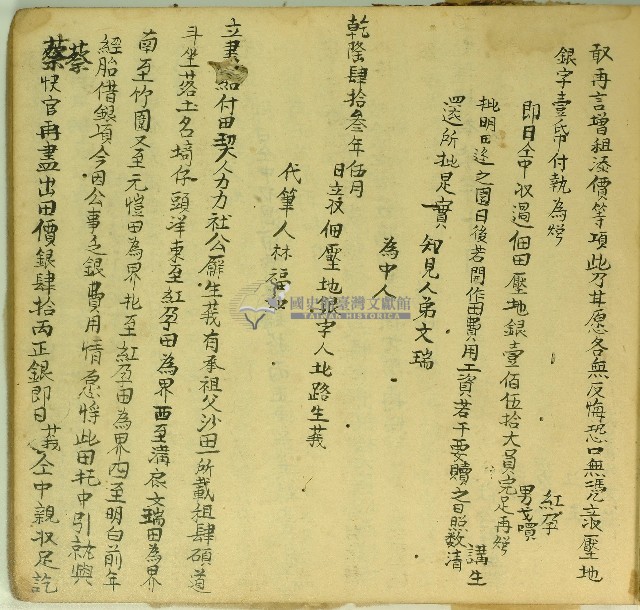 敢再言增租添價等項此乃甘愿各無反悔恐口無憑立收壓地
銀字壹帋付執為炤
紅孕
即日仝中收過佃田壓地銀壹佰伍拾大員完足再炤
男
批明丘边之園日後若開作田費用工資若干要贖之日照数清
講生
還所批是實
知見人弟文瑞
為中人
乾隆肆拾叁年伍月
日立收佃壓地銀字人北路生莪
代筆人林福
立書 給付田契人力力社公廨生莪有承祖父沙田一所載租肆碩
斗坐落土名塭仔頭洋東至紅孕田為界西至溝 文瑞田為界
南至竹園又至元愷田為界北至紅孕田為界四至明白前年
經胎借銀項今因公事乏銀費用情愿將此田托中引就與
蔡
蔡快官再盡出田價銀肆拾両正銀即日莪仝中親收足訖
國史館臺灣文獻館
TAIWAN HISTORICA